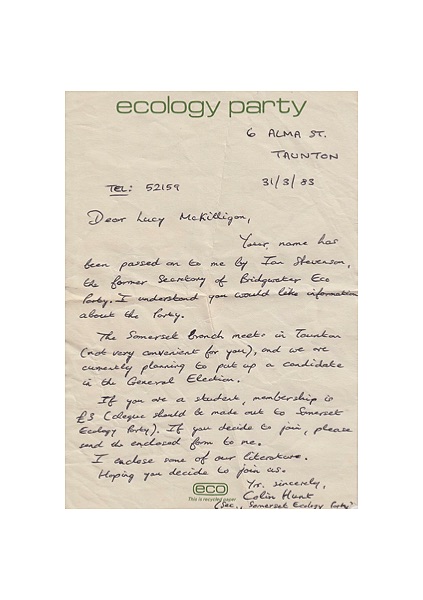 ecology party
6 ALMA ST.
TAUNTON
TEL: 52159
31/3/83
Dear Lucy McKilligan,
Your name has
been passed on to me by Ian Stevenson,
the former Secretary of Bridgwater Eco
Party. I understand you would like information
about the Party.
The Somerset Branch meets in Taunton
(not very convenient for you), and we are
currently planning to put up a candidate
in the General Election.
If you are a student, membership is
£3 (cheque should be made out to Somerset
Ecology Party). If you decide to join, please
send the enclosed form to me.
I enclose some of our literature.
Hoping you decide to join us.
Yr. sincerely,
Colin Hunt
(Sec., Somerset Ecology Party)
eco
This is recycled paper